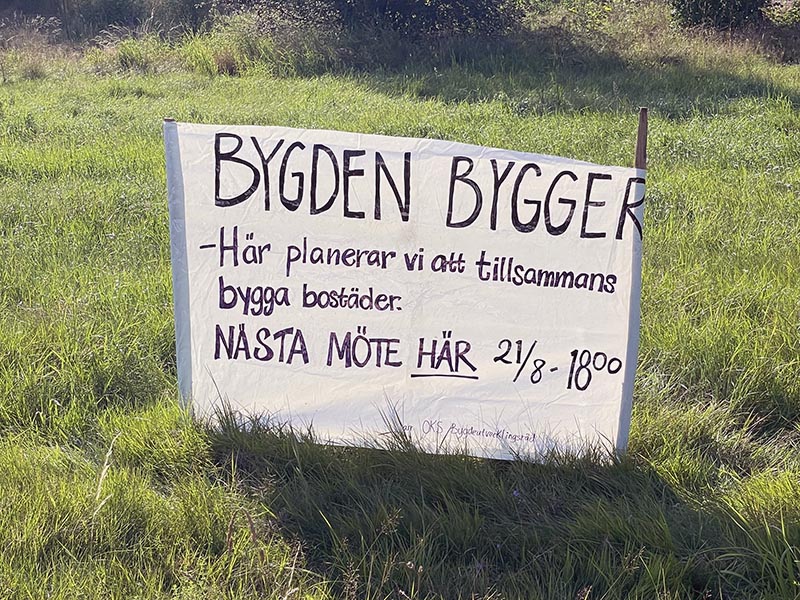 BYGDEN BYGGER
-Här planerar vi att tillsammans
bygga bostäder.
NÄSTA MÖTE HÄR 21/8 - 18⁰⁰
OKS/Bygdeutvecklingsråd